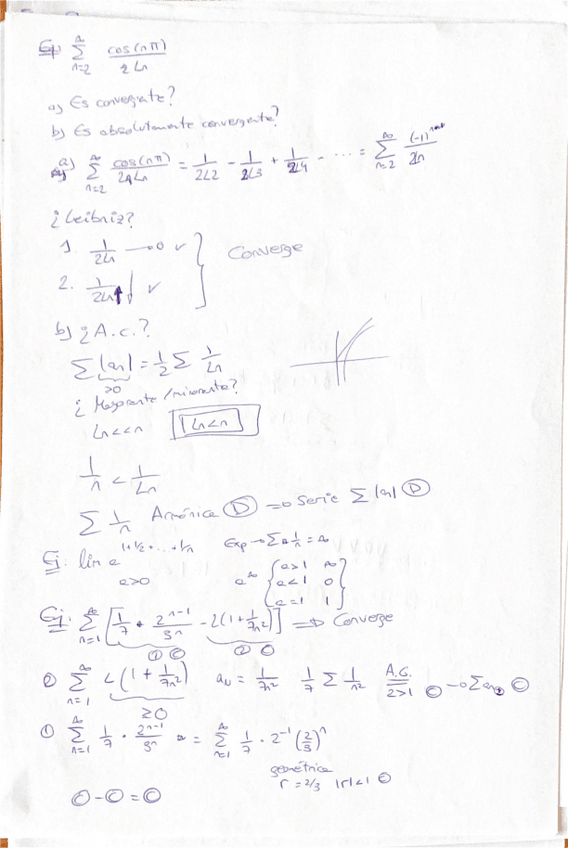 Ej. ∑_{n=2}^{∞} cos(nπ)/2Ln
a) Es convergente?
b) Es absolutamente convergente?
a) ∑_{n=2}^{∞} cos(nπ)/2Ln = 1/2L2 - 1/2L3 + 1/2L4 - ... = ∑_{n=2}^{∞} (-1)/2Ln
¿Leibniz?
1. 1/2Ln → 0 ✓
2. 1/2Ln↑ ↓ ✓ } Converge
b) ¿A.c.?
∑ |an| = 1/2 ∑ 1/Ln
>0
¿Mayorante/minorante?
Ln<<n Ln<n
1/n < 1/Ln
∑ 1/n Armónica (D) ⇒ Serie ∑ |an| (D)
Ej. lim a^{1+1/2+...+1/n} Exp → ∑ 1/n = ∞
a>0 a^∞ { a>1 ∞
a<1 0
a=1 1 }
Ej. ∑_{n=1}^{∞} [1/7 · 2^{n-1}/3^n - L(1+1/7n²)] ⇒ Converge
① Ⓒ ② Ⓒ
② ∑_{n=1}^{∞} L(1 + 1/7n²) an = 1/7n² 1/7 ∑ 1/n² 2>1 Ⓒ → ∑an₂ Ⓒ
≥0
① ∑_{n=1}^{∞} 1/7 · 2^{n-1}/3^n = ∑_{n=1}^{∞} 1/7 · 2^{-1} (2/3)^n
geométrica
r = 2/3 |r|<1 Ⓒ
Ⓒ - Ⓒ = Ⓒ